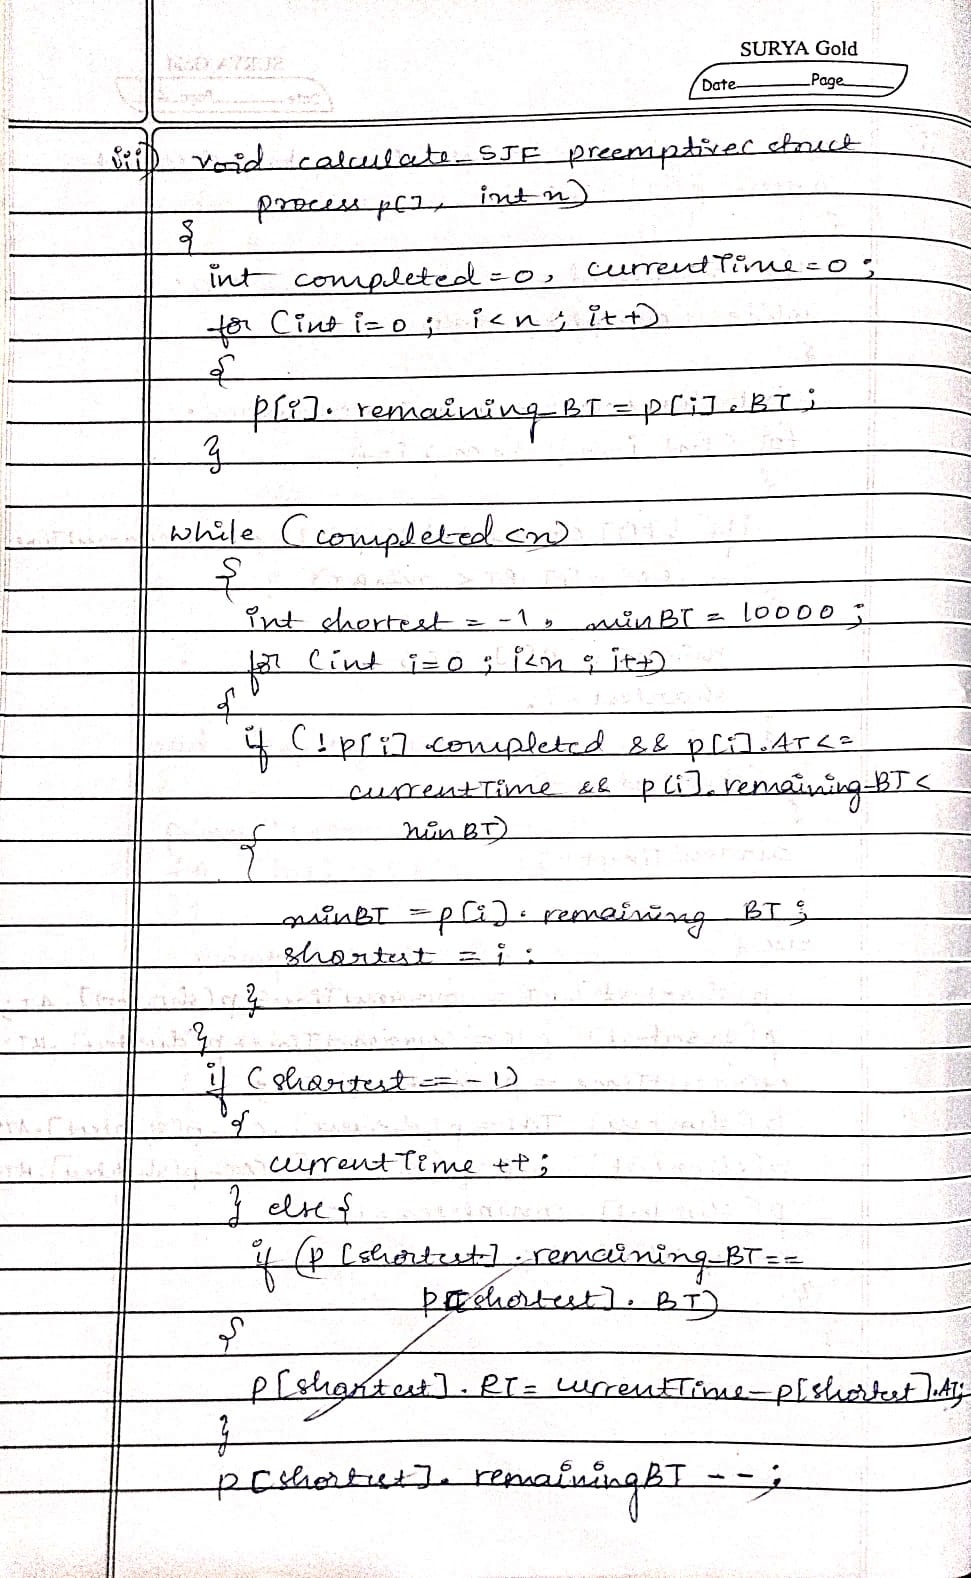 SURYA Gold
Date Page
iii) void calculate_SJF preemptive( struct
process p[], int n)
{
int completed = 0, currentTime = 0 ;
for (int i=0 ; i<n ; i++)
{
p[i]. remaining_BT = p[i]. BT ;
}
while (completed <n)
{
int shortest = -1, minBT = 10000 ;
for (int i=0 ; i<n ; i++)
{
if (! p[i] completed && p[i].AT <=
currentTime && p[i]. remaining_BT <
minBT)
{
minBT = p[i]. remaining BT ;
shortest = i ;
}
}
if (shortest == -1)
{
currentTime ++ ;
} else {
if (p [shortest] . remaining_BT ==
p[shortest]. BT)
{
p[shortest]. RT = currentTime - p[shortest].AT;
}
p [shortest]. remainingBT -- ;